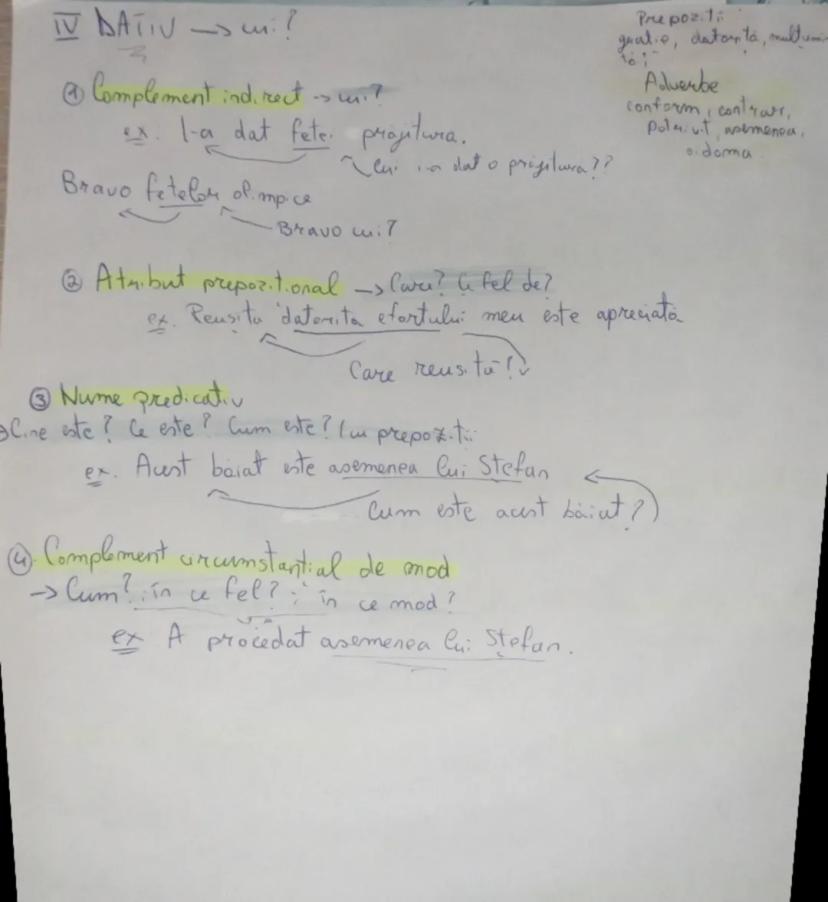 IV DATIV → cui?
Prepoziții
grație, datorită, mulțumi
tă;
Adverbe
conform, contrar,
potrivit, asemenea,
aidoma
① Complement indirect → cui?
ex. I-a dat fetei prăjitura.
Cui i-a dat o prăjitura??
Bravo fetelor olimpice
Bravo cui?
② Atribut prepozițional → Care? Ce fel de?
ex. Reușita datorită efortului meu este apreciată
Care reușită?
③ Nume predicativ
→ Cine este? Ce este? Cum este? cu prepoziții
ex. Acest băiat este asemenea lui Ștefan
Cum este acest băiat?
④ Complement circumstanțial de mod
→ Cum? în ce fel? în ce mod?
ex A procedat asemenea lui Ștefan.